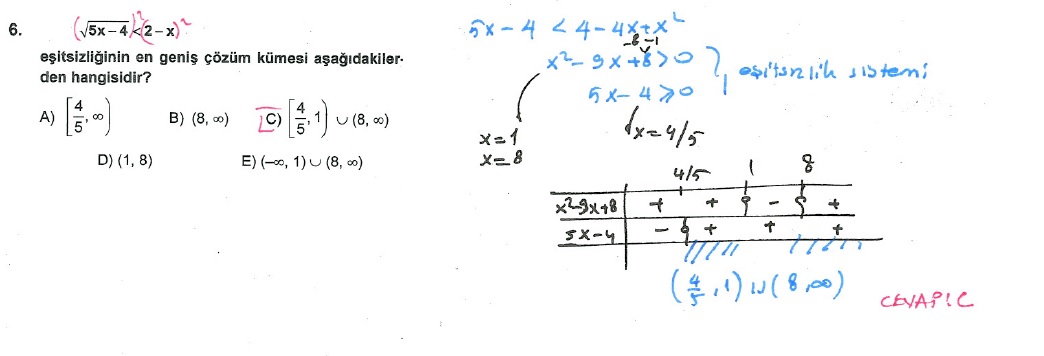 6. (√5x-4)² < (2-x)²
eşitsizliğinin en geniş çözüm kümesi aşağıdakiler-
den hangisidir?
A) [4/5, ∞) B) (8, ∞) C) [4/5, 1) ∪ (8, ∞)
D) (1, 8) E) (-∞, 1) ∪ (8, ∞)
5x - 4 < 4 - 4x + x²
-8 -1
x² - 9x + 8 > 0
eşitsizlik sistemi
5x - 4 ≥ 0
x = 1
x = 8
x = 4/5
4/5 1 8
x²-9x+8 + + - +
5x-4 - + + +
(4/5, 1) ∪ (8, ∞)
CEVAP: C